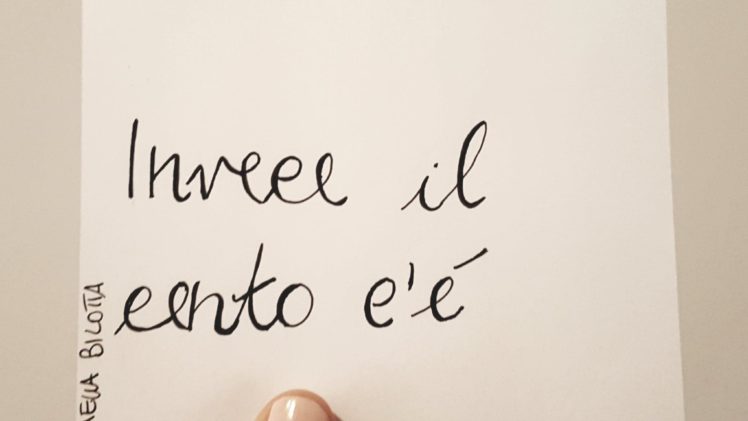 Invece il
cento c'é
BILOTTA